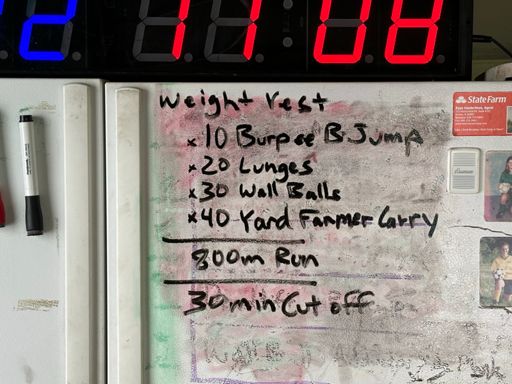 2 11 08
Weight vest
x 10 Burpee B Jump
x 20 Lunges
x 30 Wall Balls
x 40 Yard Farmer Carry
800m Run
30 min Cut off
State Farm